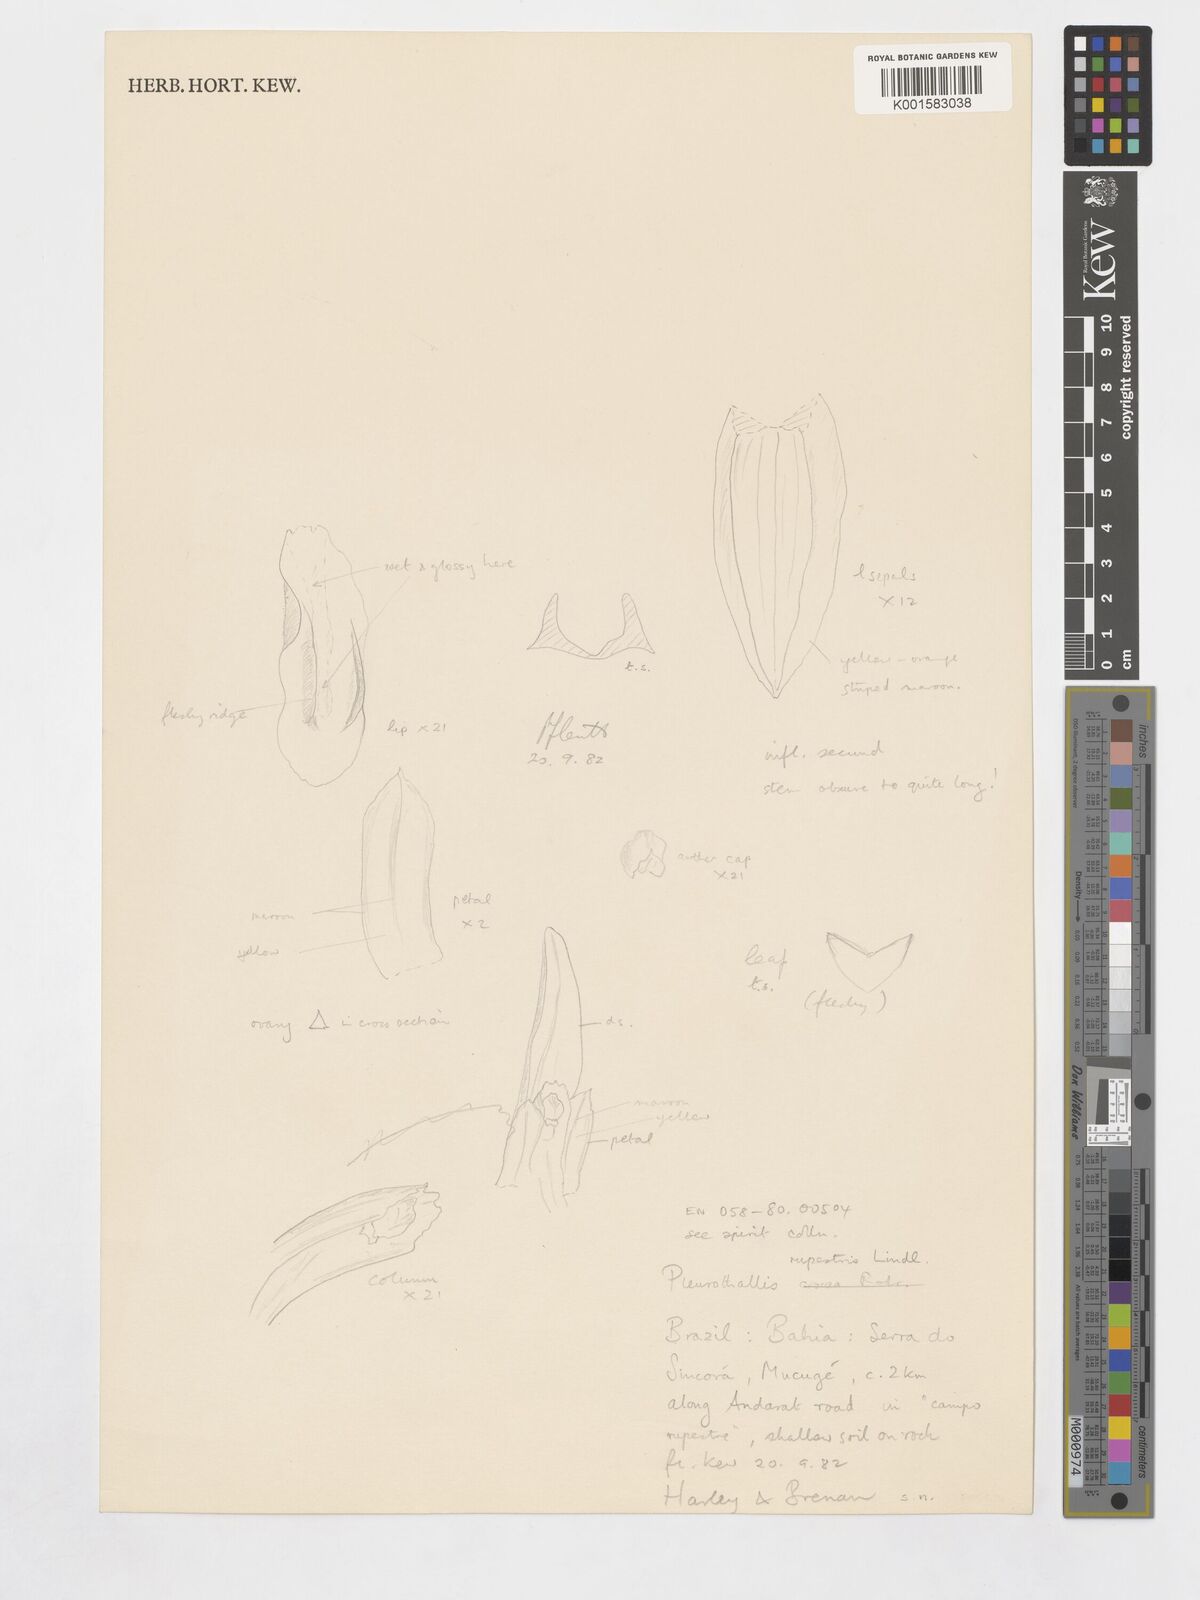 HERB. HORT. KEW.
ROYAL BOTANIC GARDENS KEW
K001583038
wet & glossy here
fleshy ridge
lip x 21
t.s.
20. 9. 82
l sepals
x 12
yellow - orange
striped maroon.
infl. secund
stem obscure to quite long!
anther cap
x 21
maroon
yellow
petal
x 2
leaf
t.s.
(fleshy)
ovary △ in cross section
ds.
maroon
yellow
petal
column
x 21
EN 058-80. 00504
see spirit colln.
rupestris Lindl.
Pleurothallis
Brazil : Bahia : Serra do
Sincorá, Mucugé, c. 2 km
along Andarai road in "campo
rupestre", shallow soil on rock
fl. Kew 20. 9. 82
Harley & Brenan s.n.
Royal Botanic Gardens
Kew
0 1 2 3 4 5 6 7 8 9 10
cm
copyright reserved
inches
Density
Don Williams
M000974
centimeters